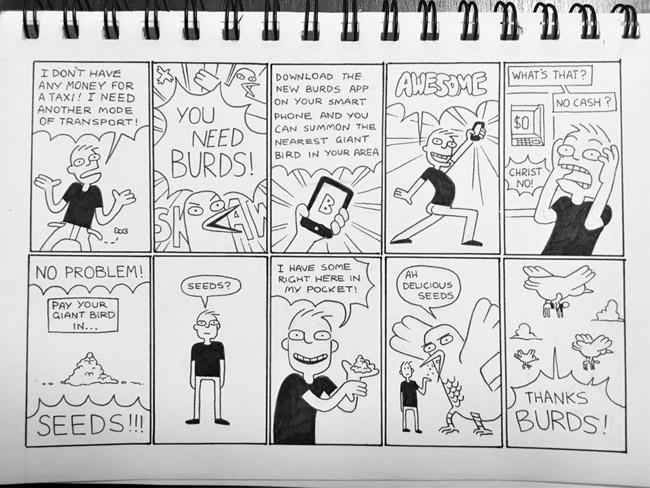 I DON'T HAVE
ANY MONEY FOR
A TAXI! I NEED
ANOTHER MODE
OF TRANSPORT!
YOU
NEED
BURDS!
SKRAW
DOWNLOAD THE
NEW BURDS APP
ON YOUR SMART
PHONE AND YOU
CAN SUMMON THE
NEAREST GIANT
BIRD IN YOUR AREA
B
AWESOME
WHAT'S THAT?
NO CASH?
$0
CHRIST
NO!
NO PROBLEM!
PAY YOUR
GIANT BIRD
IN...
SEEDS!!!
SEEDS?
I HAVE SOME
RIGHT HERE IN
MY POCKET!
AH
DELICIOUS
SEEDS
THANKS
BURDS!